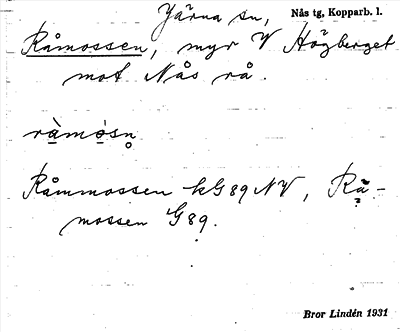 Järna sn, Nås tg, Kopparb. l.
Råmossen, myr V Högberget
mot Nås rå.
rå̀mo̠sn̥
Råmmossen kG89NV, Rå-
mossen G89.
Bror Lindén 1931